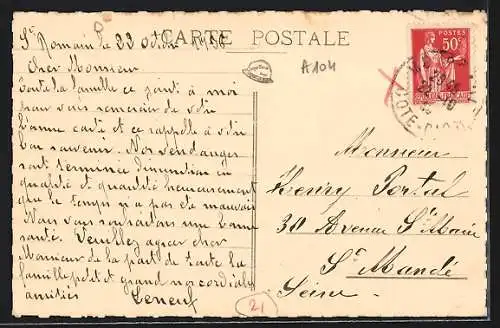 St Romain le 22 octobre 1936
CARTE POSTALE
A104
Cher Monsieur
Toute la famille ce joint à moi
pour vous remercier de votre
bonne carte et ce rappelle à votre
bon souvenir. Nos vendanges
sont terminée diminution en
qualité et quantité heureusement
que le temps n'a pas de mauvais
Nous vous souhaitons une bonne
santé. Veuillez agréer cher
Monsieur de la part de toute la
famille petit et grand nos cordiales
amitiés
Leneuf
21
POSTES
50c
COTE-D'OR
Monsieur
Henry Portal
30 Avenue Ste Marie
St Mandé
Seine